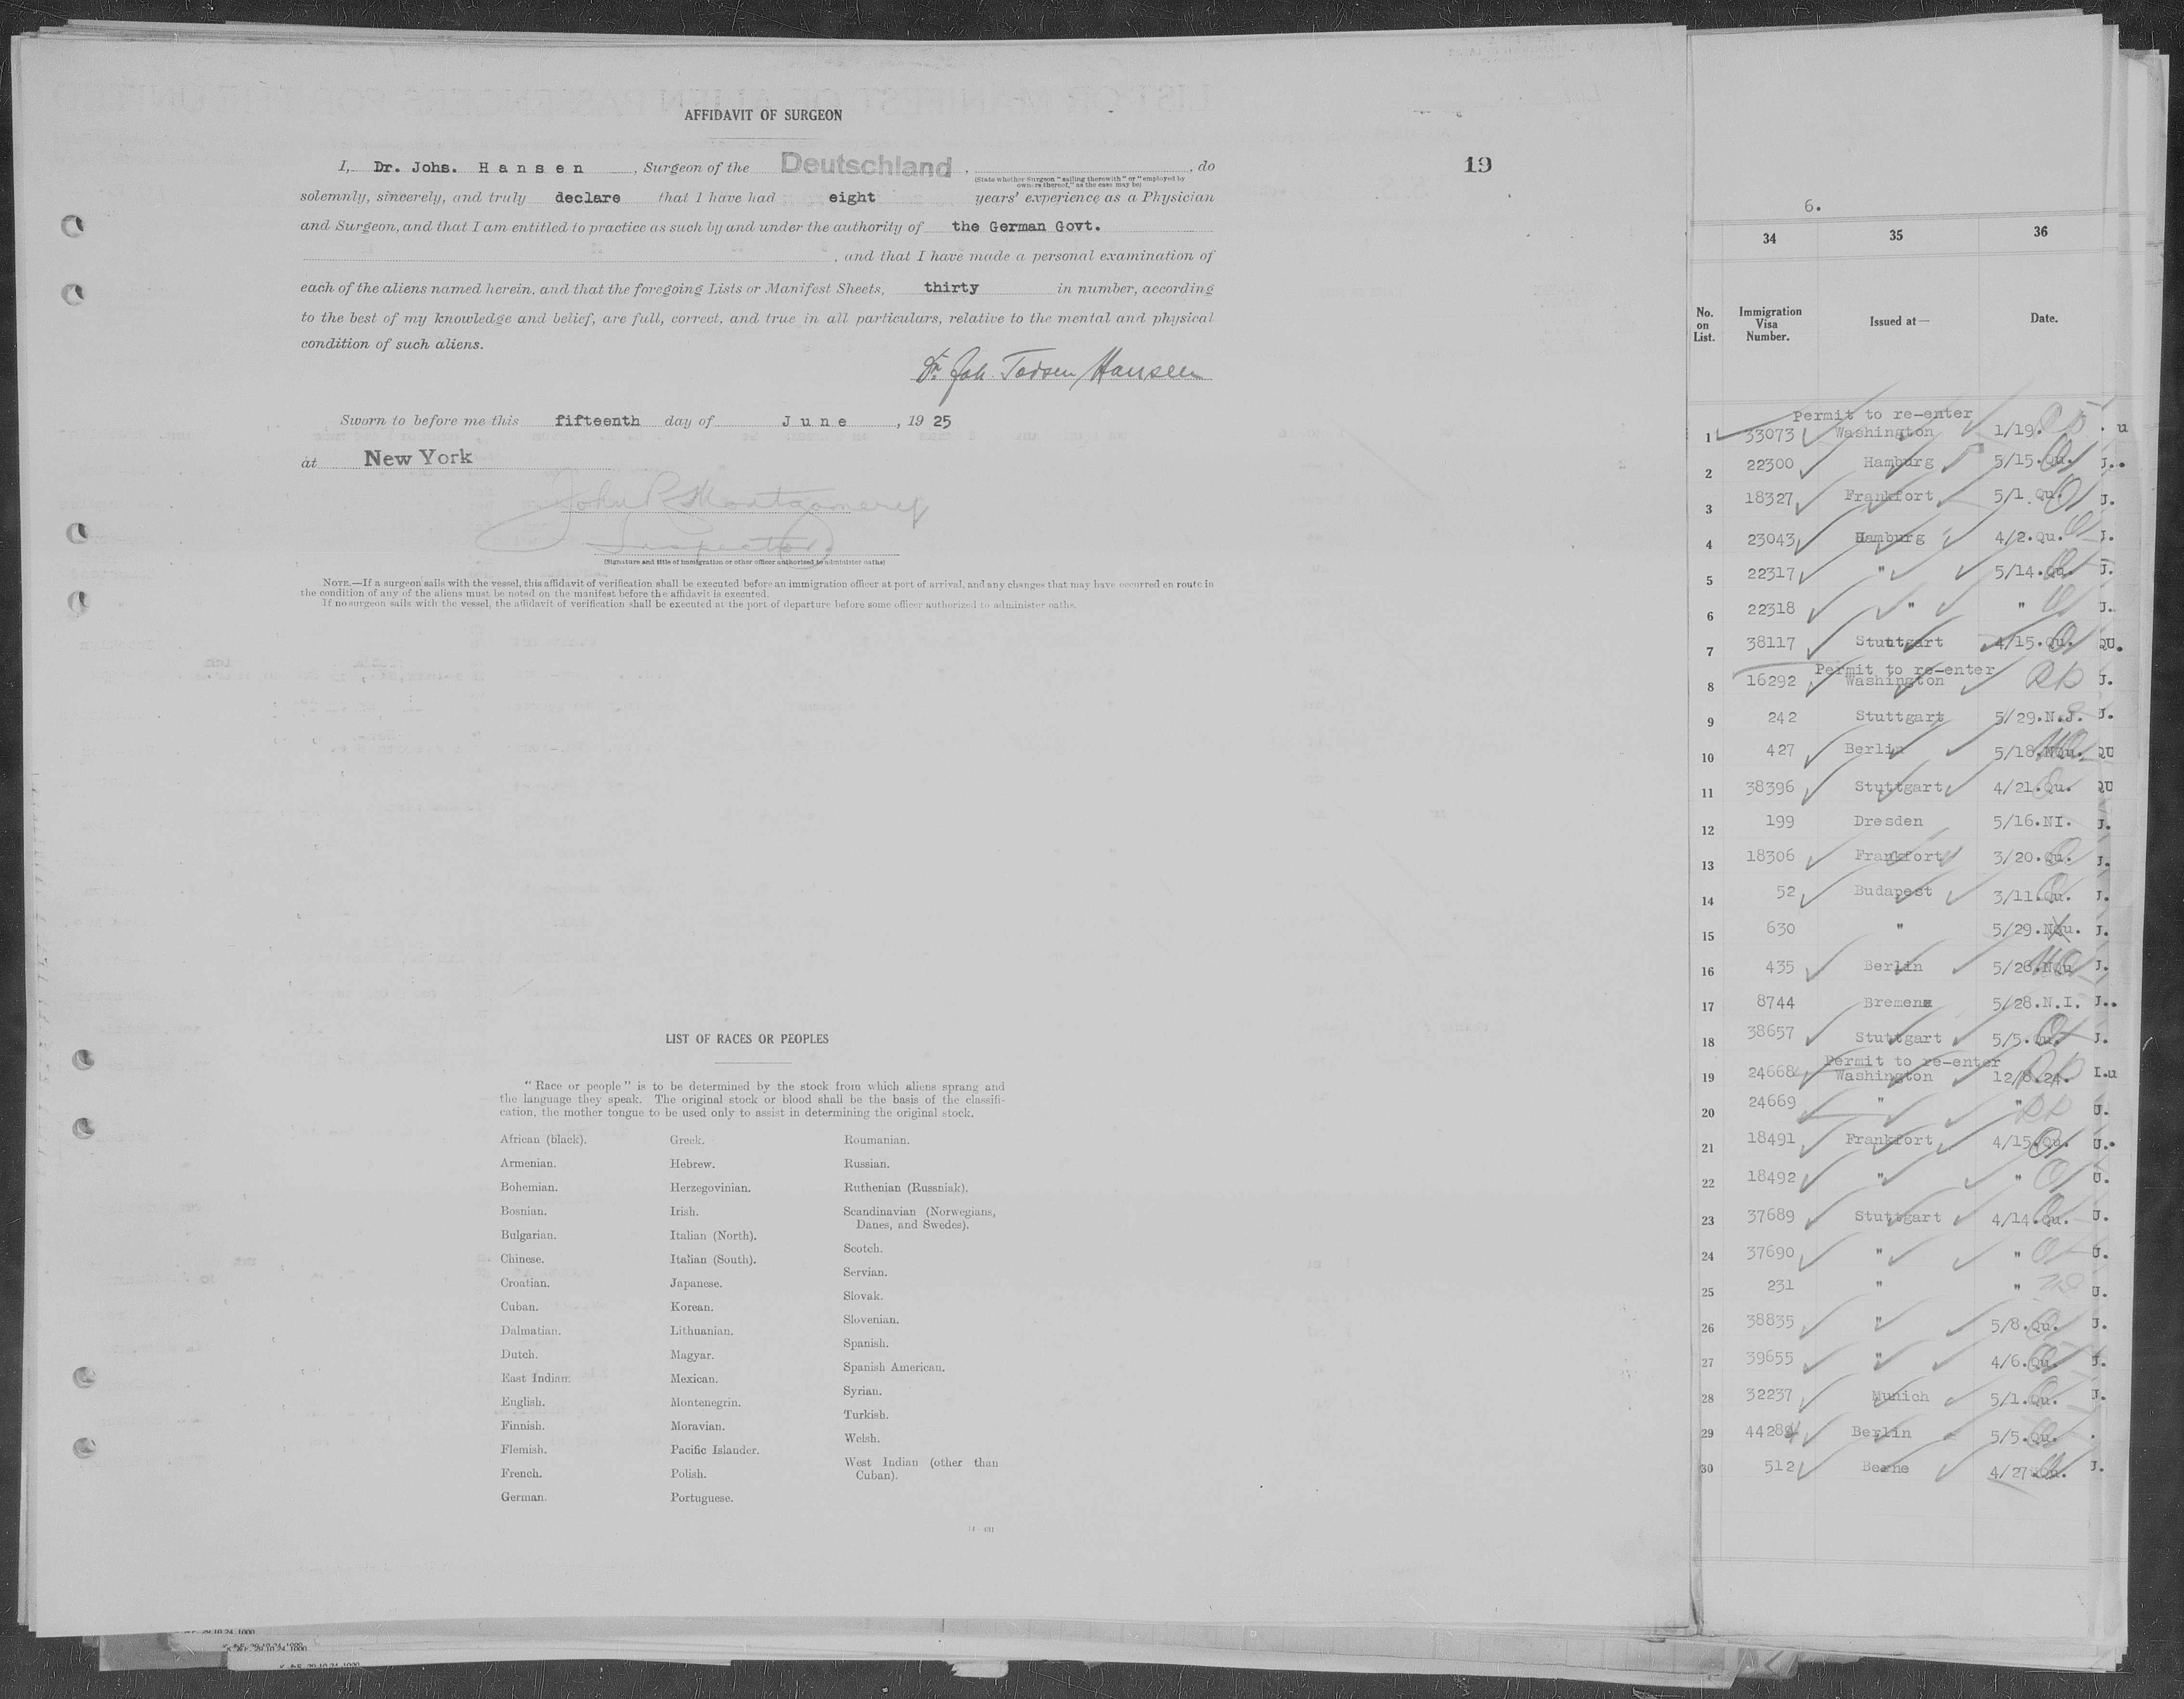 AFFIDAVIT OF SURGEON
I, Dr. Johs. Hansen, Surgeon of the Deutschland, , do
(State whether Surgeon "sailing therewith" or "employed by
owners thereof," as the case may be)
solemnly, sincerely, and truly declare that I have had eight years' experience as a Physician
and Surgeon, and that I am entitled to practice as such by and under the authority of the German Govt.
, and that I have made a personal examination of
each of the aliens named herein, and that the foregoing Lists or Manifest Sheets, thirty in number, according
to the best of my knowledge and belief, are full, correct, and true in all particulars, relative to the mental and physical
condition of such aliens.
Dr. Joh. Todsen Hansen
Sworn to before me this fifteenth day of June, 19 25
at New York
John P. Montgomery
Inspector
(Signature and title of immigration or other officer authorized to administer oaths)
NOTE.—If a surgeon sails with the vessel, this affidavit of verification shall be executed before an immigration officer at port of arrival, and any changes that may have occurred en route in
the condition of any of the aliens must be noted on the manifest before the affidavit is executed.
If no surgeon sails with the vessel, the affidavit of verification shall be executed at the port of departure before some officer authorized to administer oaths.
LIST OF RACES OR PEOPLES
"Race or people" is to be determined by the stock from which aliens sprang and
the language they speak. The original stock or blood shall be the basis of the classifi-
cation, the mother tongue to be used only to assist in determining the original stock.
African (black).
Armenian.
Bohemian.
Bosnian.
Bulgarian.
Chinese.
Croatian.
Cuban.
Dalmatian.
Dutch.
East Indian.
English.
Finnish.
Flemish.
French.
German.
Greek.
Hebrew.
Herzegovinian.
Irish.
Italian (North).
Italian (South).
Japanese.
Korean.
Lithuanian.
Magyar.
Mexican.
Montenegrin.
Moravian.
Pacific Islander.
Polish.
Portuguese.
Roumanian.
Russian.
Ruthenian (Russniak).
Scandinavian (Norwegians,
Danes, and Swedes).
Scotch.
Servian.
Slovak.
Slovenian.
Spanish.
Spanish American.
Syrian.
Turkish.
Welsh.
West Indian (other than
Cuban).
19
6.
34 35 36
No.
on
List.
Immigration
Visa
Number.
Issued at—
Date.
Permit to re-enter
1 33073 Washington 1/19.
2 22300 Hamburg 5/15.Qu.
3 18327 Frankfort 5/1.Qu.
4 23043 Hamburg 4/2.Qu.
5 22317 " 5/14.Qu.
6 22318 " "
7 38117 Stuttgart 4/15.Qu.
Permit to re-enter
8 16292 Washington RP
9 242 Stuttgart 5/29.N.J.
10 427 Berlin 5/18.NQu.
11 38396 Stuttgart 4/21.Qu.
12 199 Dresden 5/16.NI.
13 18306 Frankfort 3/20.Qu.
14 52 Budapest 3/11.Qu.
15 630 " 5/29.NQu.
16 435 Berlin 5/26.NQu
17 8744 Bremen 5/28.N.I.
18 38657 Stuttgart 5/5.Qu.
Permit to re-enter
19 24668 Washington 12/8.24.
20 24669 " " RP
21 18491 Frankfort 4/15.Qu.
22 18492 " "
23 37689 Stuttgart 4/14.Qu.
24 37690 " "
25 231 " "
26 38835 " 5/8.Qu.
27 39655 " 4/6.Qu.
28 32237 Munich 5/1.Qu.
29 44284 Berlin 5/5.Qu.
30 512 Berne 4/27.Qu.